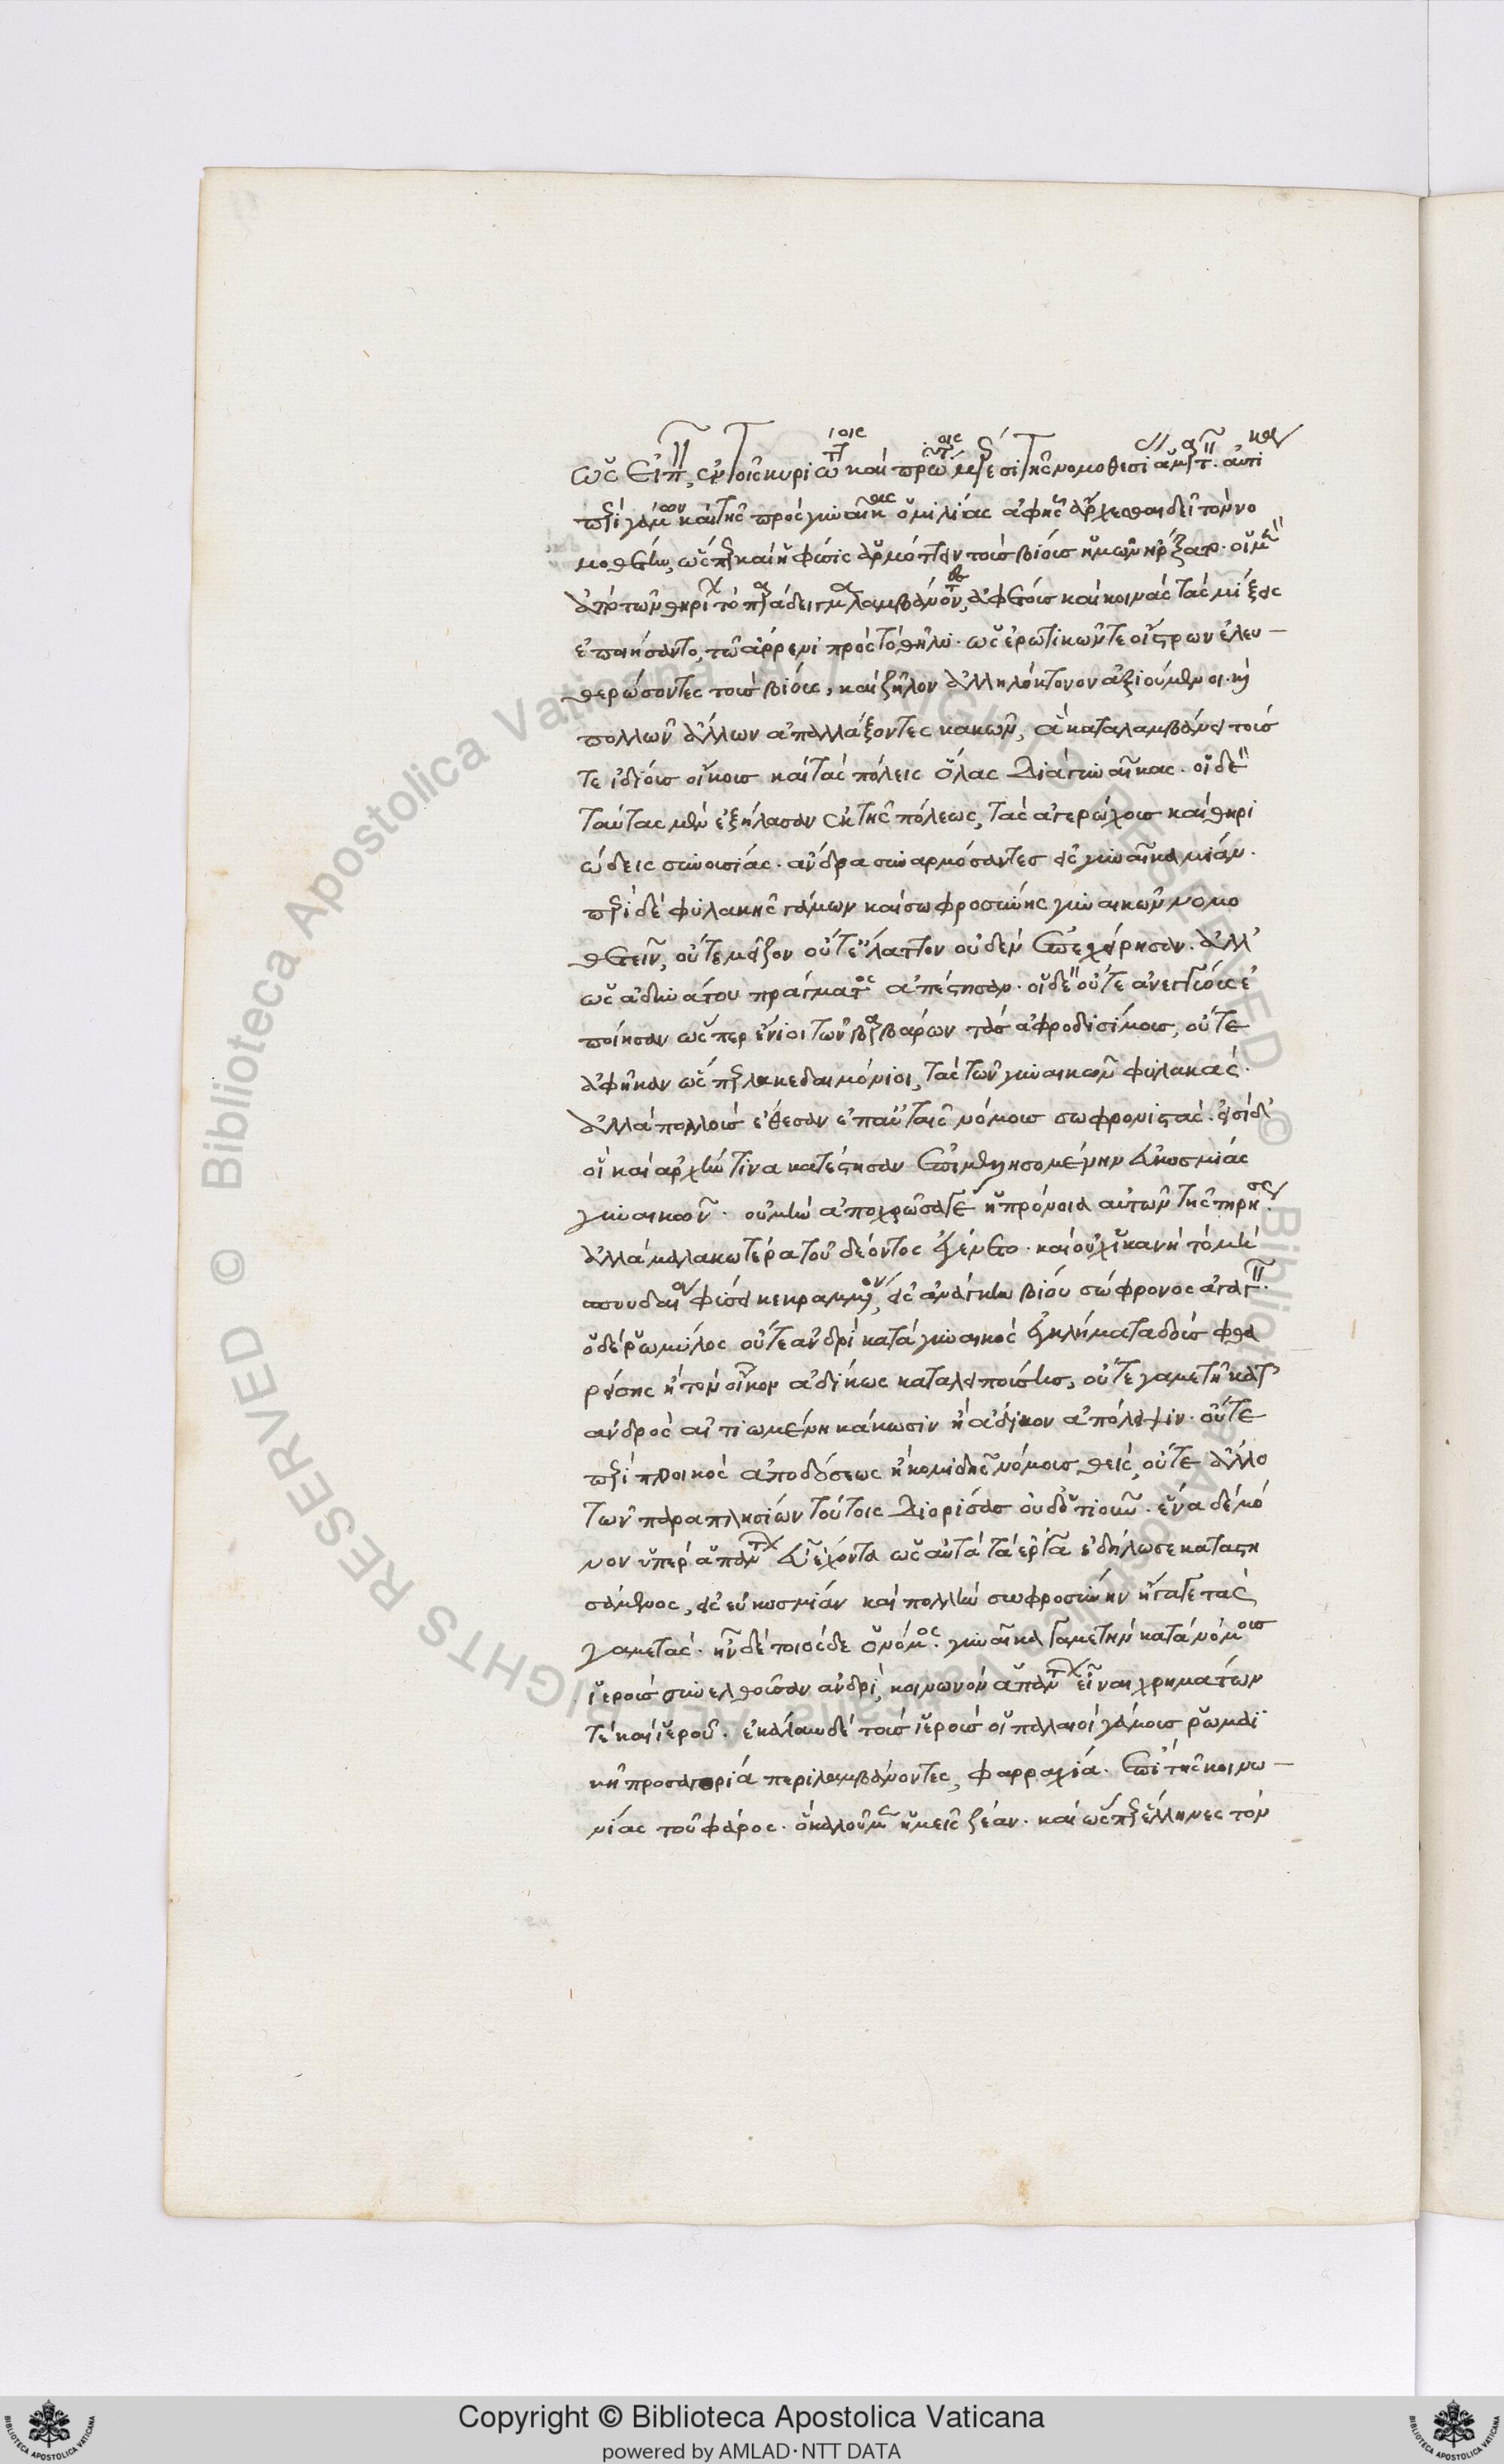 ὡς εἶπον, ἐν τοῖς κυριωτάτοις καὶ πρώτοις μέρεσι τῆς νομοθεσίας ἁμαρτάνειν. αὐτίκα
περὶ γάμων καὶ τῆς πρὸς γυναῖκας ὁμιλίας ἀφ' ἧς ἄρχεσθαι δεῖ τὸν νο
μοθέτην, ὥσπερ καὶ ἡ φύσις ἁρμόττειν τοὺς βίους ἡμῶν ἤρξατο. οἱ μὲν
ἀπὸ τῶν θηρίων τὸ παράδειγμα λαμβάνοντες, ἀφέτους καὶ κοινὰς τὰς μίξεις
ἐποιήσαντο, τῷ ἄρρενι πρὸς τὸ θῆλυ. ὡς ἐρωτικῶν τε οἴστρων ἐλευ –
θερώσοντες τοὺς βίους, καὶ ζῆλον ἀλληλόκτονον ἀξιούμενοι. καὶ
πολλῶν ἄλλων ἀπαλλάξοντες κακῶν, ἃ καταλαμβάνει τούς
τε ἰδίους οἴκους καὶ τὰς πόλεις ὅλας διὰ γυναῖκας. οἱ δὲ
ταύτας μὲν ἐξήλασαν ἐκ τῆς πόλεως, τὰς ἀγερώχους καὶ θηρι
ώδεις συνουσίας. ἄνδρα συναρμόσαντες εἰς γυναῖκα μίαν.
περὶ δὲ φυλακῆς γάμων καὶ σωφροσύνης γυναικῶν νομο
θετεῖν, οὔτε μεῖζον οὔτε ἔλαττον οὐδὲν ἐπεχείρησαν. ἀλλ'
ὡς ἀδυνάτου πράγματος ἀπέστησαν. οἱ δὲ οὔτε ἀνεγγύους ἐ
ποίησαν ὥσπερ ἔνιοι τῶν βαρβάρων τὰς ἀφροδισίμους, οὔτε
ἀφῆκαν ὥσπερ λακεδαιμόνιοι, τὰς τῶν γυναικῶν φυλακάς.
ἀλλὰ πολλοὺς ἔθεσαν ἐπ' αὐταῖς νόμους σωφρονιστάς. εἰσὶ δ'
οἳ καὶ ἀρχήν τινα κατέστησαν ἐπιμελησομένην εὐκοσμίας
γυναικῶν. οὐ μὴν ἀποχρῶσά γε ἡ πρόνοια αὐτῶν τῆς τηρήσεως.
ἀλλὰ μαλακωτέρα τοῦ δέοντος ἐγένετο. καὶ οὐχ ἱκανὴ τὸ μὴ
σπουδαίαν φύσει κεκραμμένον, εἰς ἀνάγκην βίου σώφρονος ἀγαγεῖν.
ὁ δὲ ῥωμύλος οὔτε ἀνδρὶ κατὰ γυναικὸς ἐγκλήματα δοὺς φθα
ρείσης ἢ τὸν οἶκον ἀδίκως καταλειπούσης, οὔτε γαμετῇ κατ'
ἀνδρὸς αἰτιωμένη κάκωσιν ἢ ἄδικον ἀπόλειψιν. οὔτε
περὶ προικὸς ἀποδόσεως ἢ κομιδῆς νόμους θείς, οὔτε ἄλλο
τῶν παραπλησίων τούτοις διορίσας οὐδ' ὁτιοῦν. ἕνα δὲ μό
νον ὑπὲρ ἁπάντων εὖ ἔχοντα ὡς αὐτὰ τὰ ἔργα ἐδήλωσε καταστη
σάμενος, εἰς εὐκοσμίαν καὶ πολλὴν σωφροσύνην ἤγαγε τὰς
γαμετάς. ἦν δὲ τοιόσδε ὁ νόμος. γυναῖκα γαμετὴν κατὰ νόμους
ἱεροὺς συνελθοῦσαν ἀνδρὶ, κοινωνὸν ἁπάντων εἶναι χρημάτων
τε καὶ ἱερῶν. ἐκάλουν δὲ τοὺς ἱεροὺς οἱ παλαιοὶ γάμους ῥωμαϊ
κῇ προσηγορίᾳ περιλαμβάνοντες, φαρραχία. ἐπὶ τῆς κοινω –
νίας τοῦ φάρος. ὃ καλοῦμεν ἡμεῖς ζέαν. καὶ ὥσπερ ἕλληνες τὸν
Copyright © Biblioteca Apostolica Vaticana
powered by AMLAD·NTT DATA